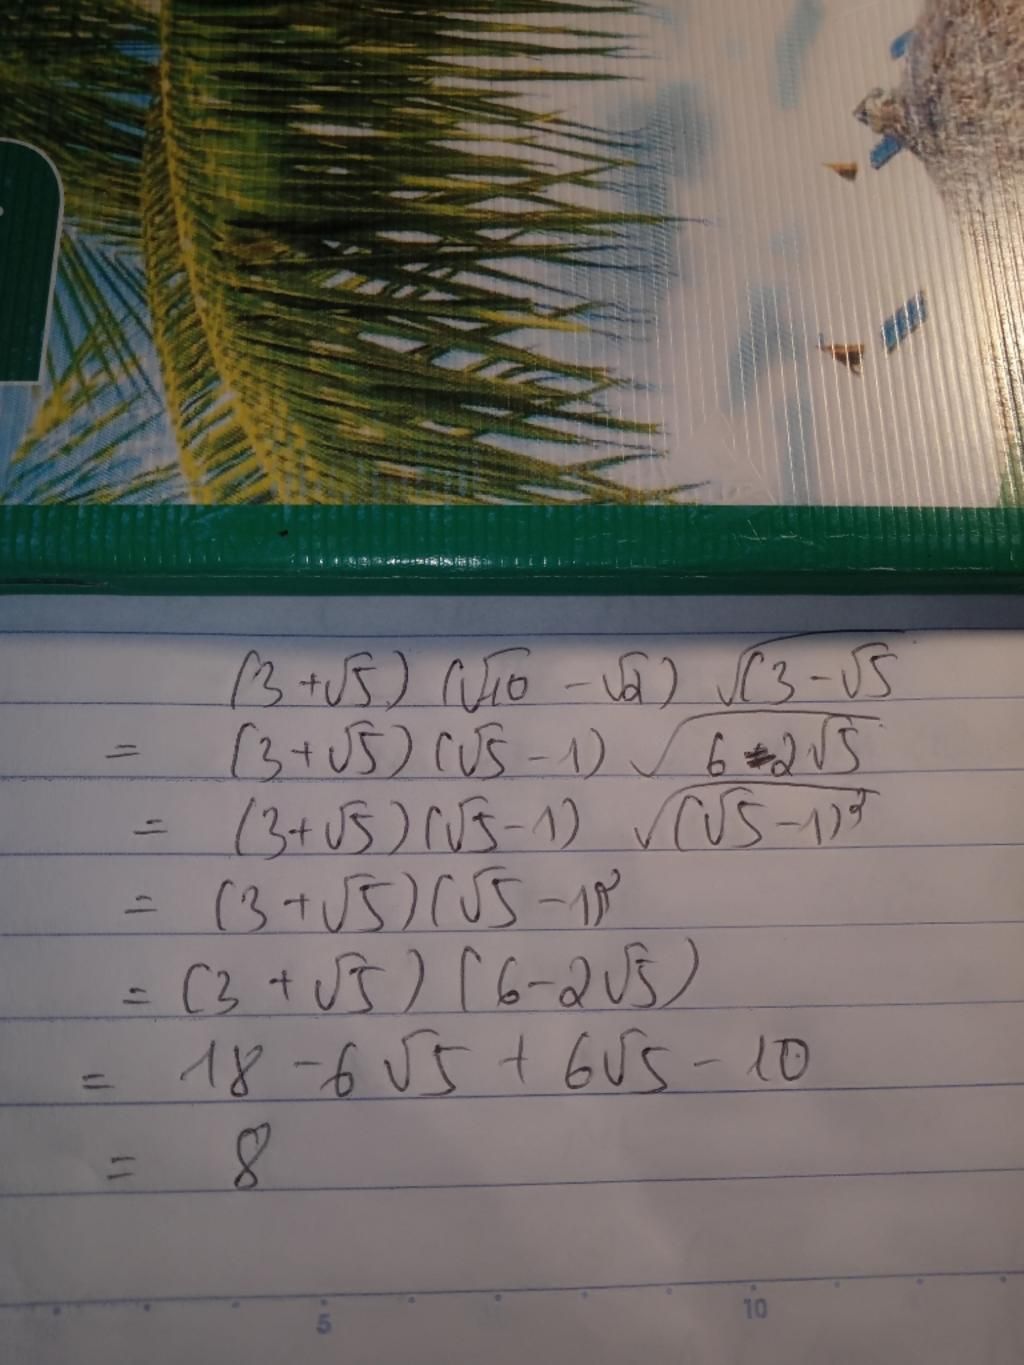 (3+√5) (√10 - √2) √(3-√5
= (3+√5) (√5-1) √6-2√5
= (3+√5)(√5-1) √(√5-1)²
= (3+√5)(√5-1)²
= (3+√5) (6-2√5)
= 18 - 6√5 + 6√5 - 10
= 8
5 10